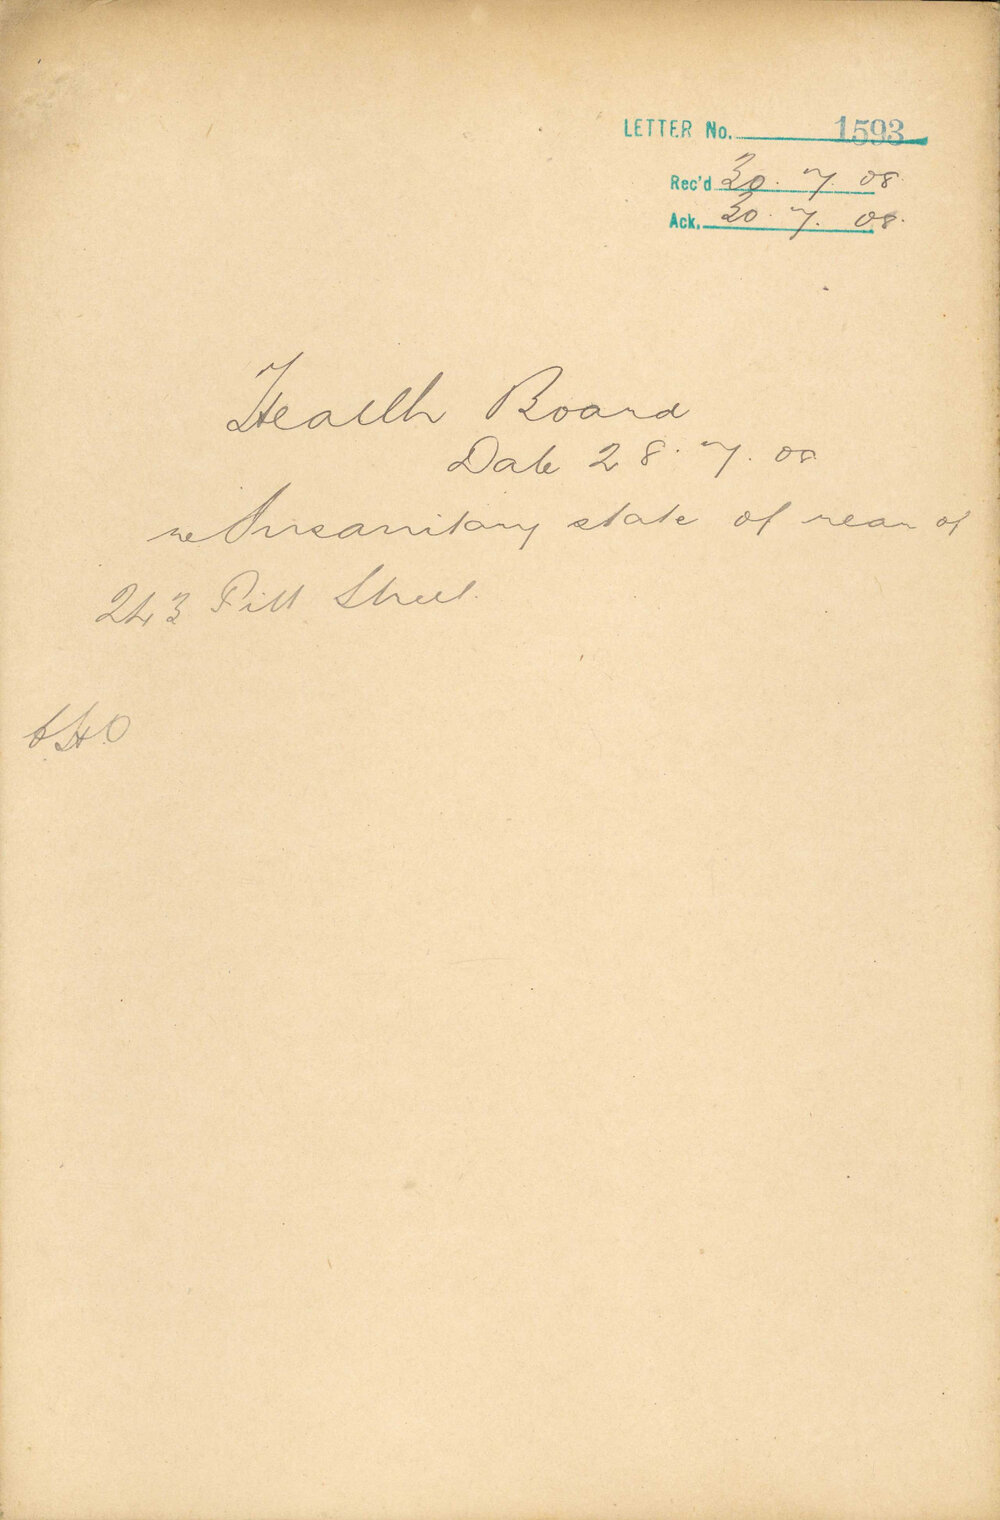 LETTER No. 1593
Rec'd 30. 7. 08.
Ack. 30. 7. 08.
Health Board
Date 28. 7. 08
re Insanitary state of rear of
243 Pitt Street.